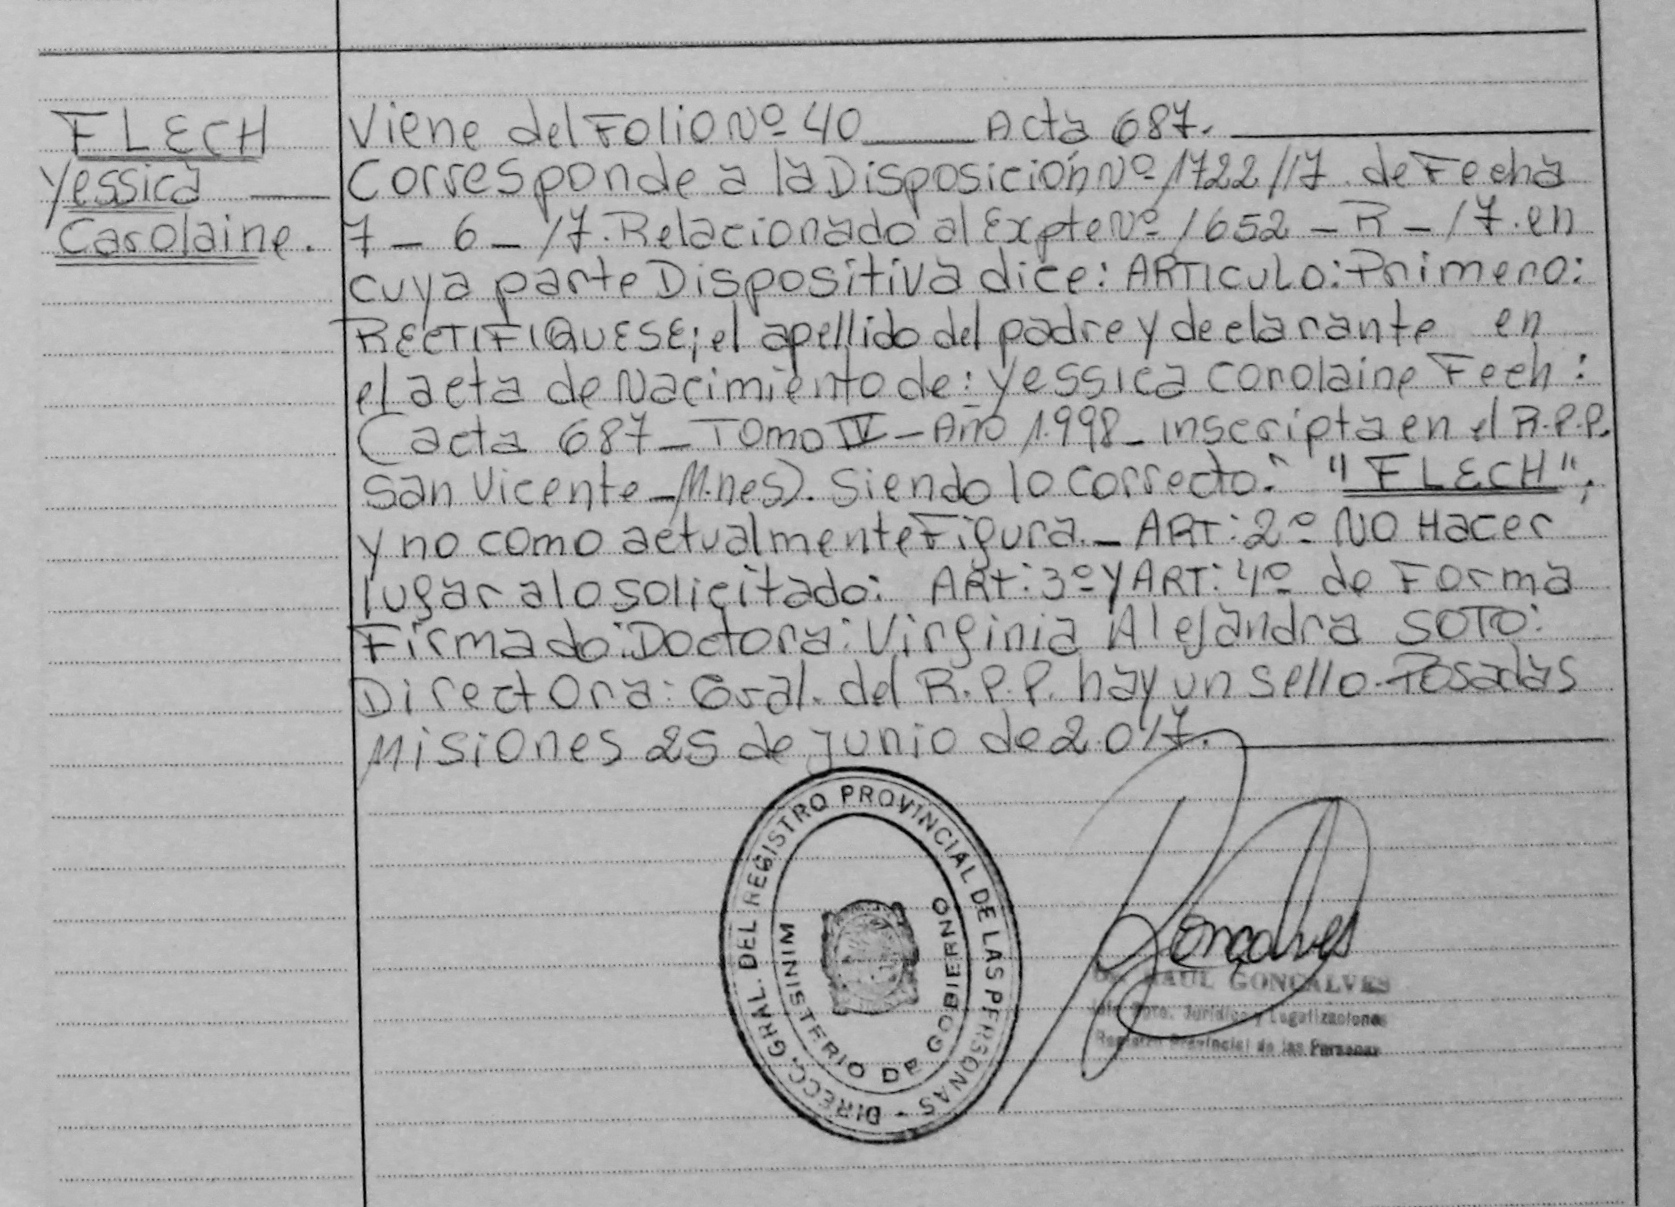 FLECH
Yessica
Carolaine.
Viene del Folio Nº 40 Acta 687.
Corresponde a la Disposición Nº 1722/17. de Fecha
7 - 6 - 17. Relacionado al Expte Nº 1652 - R - 17. en
cuya parte Dispositiva dice: ARTICULO: Primero:
RECTIFIQUESE; el apellido del padre y declarante en
el acta de Nacimiento de: Yessica Corolaine Fech:
(acta 687 - TOmo IV - Año 1.998 - inscripta en el R.P.P.
San Vicente - M.nes). Siendo lo correcto: "FLECH";
y no como actualmente Figura. - ART: 2º NO Hacer
lugar a lo solicitado: ART: 3º y ART: 4º de Forma
Firmado: Doctora: Virginia Alejandra SOTO:
Directora: Gral. del R.P.P. hay un sello - Posadas
Misiones 25 de junio de 2.017.
DIRECC. GRAL. DEL REGISTRO PROVINCIAL DE LAS PERSONAS -
MINISTERIO DE GOBIERNO
Gonçalves
RAUL GONÇALVES
Jefe Dpto. Jurídico y Legalizaciones
Registro Provincial de las Personas